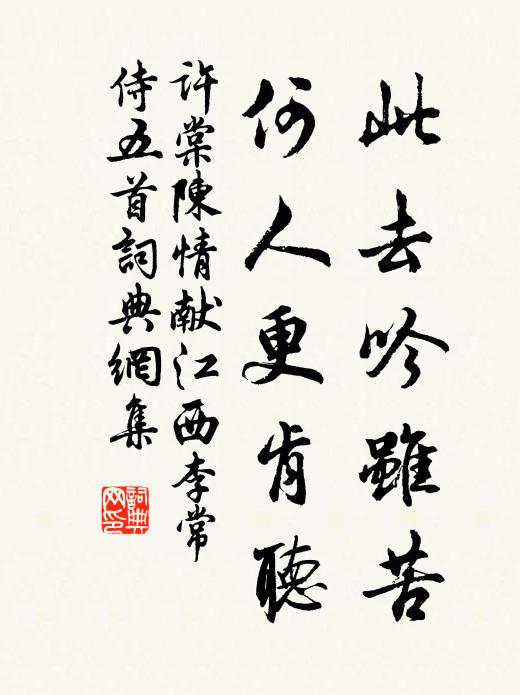 此去吟雖苦
何人更肯聽
許棠陳情献江西李常
侍五首詞典網集
詞典
网印